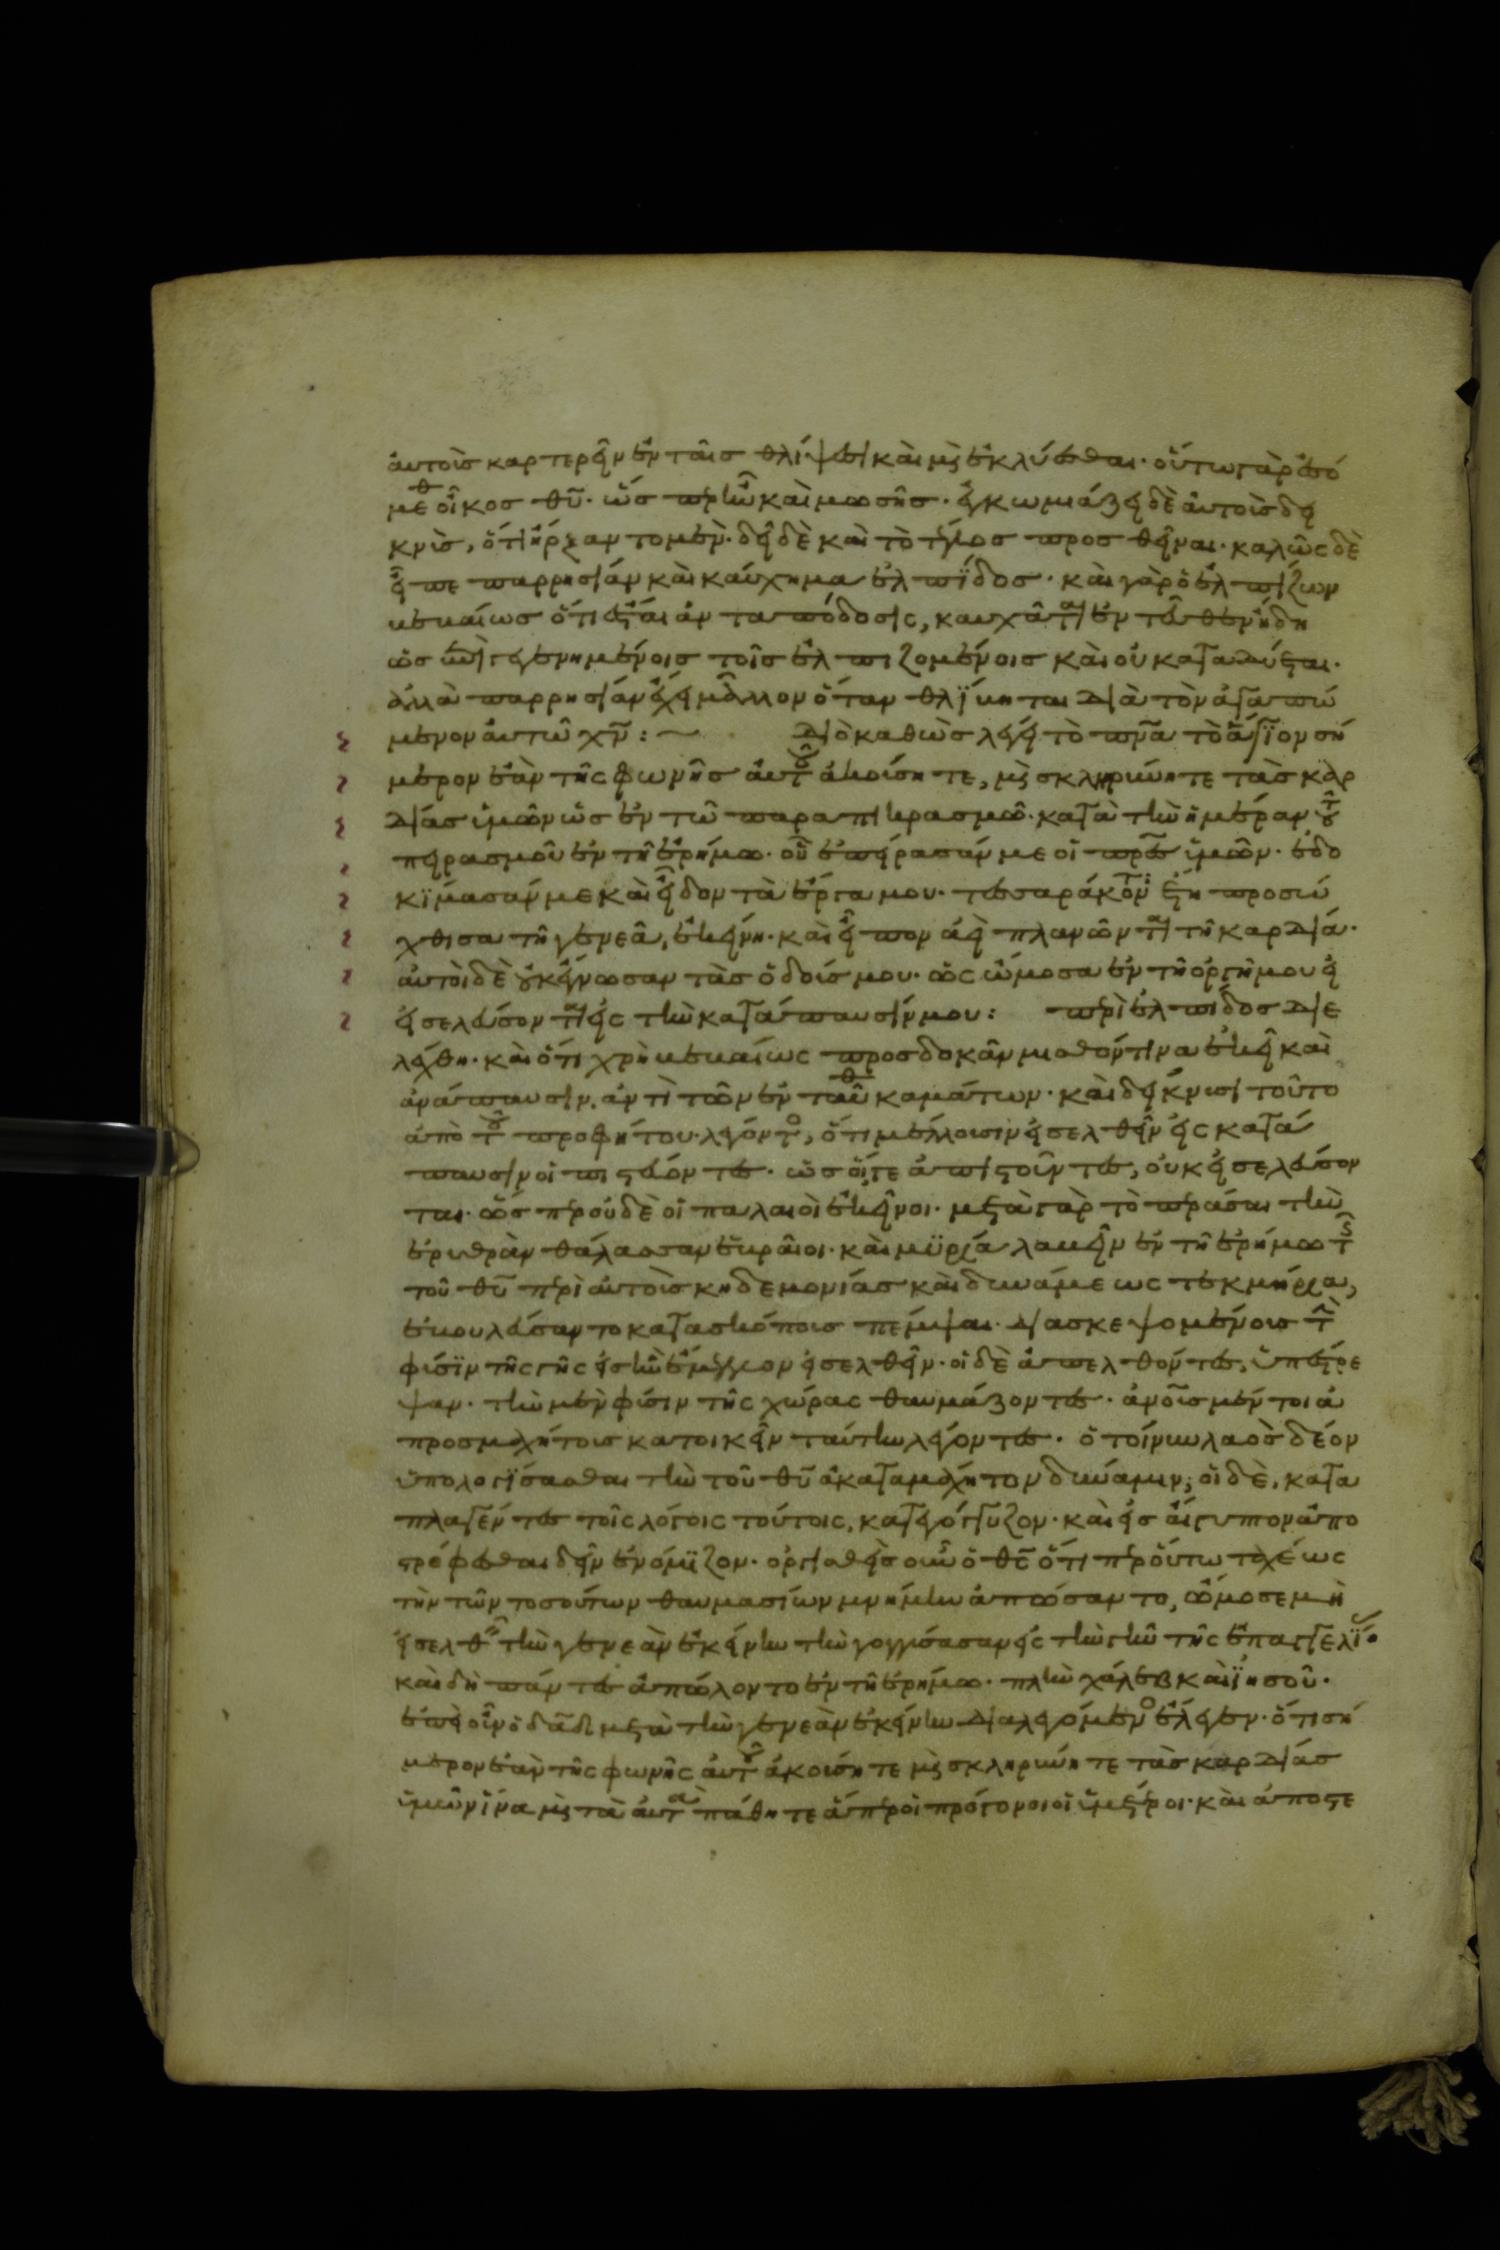 αὐτοὺς καρτερεῖν ἐν ταῖς θλίψεσι καὶ μὴ ἐκλύεσθαι· οὕτω γὰρ ἐσό
μεθ οἶκος θῦ· ὡς περ ἦν καὶ μωσῆς· ἐγκωμιάζει δὲ αὐτοὺς δει
κνὺς, ὅτι ἤρξαντο μὲν· δεῖ δὲ καὶ τὸ τέλος προσθεῖναι· καλῶς δὲ
εἶπε παρρησίαν καὶ καύχημα ἐλπίδος· καὶ γὰρ ὁ ἐλπίζων
βεβαίως ὅτι ἔσται ἀνταπόδοσις, καυχᾶται ἐν τῶ θεν ἤδη
ὡς ἐπὶ γεγενημένοις τοῖς ἐλπιζομένοις καὶ οὐ καταδύεται·
ἀλλὰ παρρησίαν ἔχει μᾶλλον ὅταν θλίβηται διὰ τὸν ἀγαπώ
μενον αὐτῶ χν̄ :~ Διὸ καθὼς λέγει τὸ πν̄α τὸ ἅγιον σή
μερον ἐὰν τῆς φωνῆς αὐτοῦ ἀκούσητε, μὴ σκληρύνητε τὰς καρ
δίας ὑμῶν ὡς ἐν τῶ παραπικρασμῶ· κατὰ τὴν ἡμέραν τοῦ
πειρασμοῦ ἐν τῆ ἐρήμω· οὗ ἐπείρασάν με οἱ πρ̄ες ὑμῶν· ἐδο
κίμασάν με καὶ εἶδον τὰ ἔργα μου· τεσσαράκοντα ἔτη· προσώ
χθισα τῆ γενεᾶ ἐκείνη· καὶ εἶπον ἀεὶ πλανῶνται τῆ καρδία·
αὐτοὶ δὲ οὐκ ἔγνωσαν τὰς ὁδούς μου· ὡς ὤμοσα ἐν τῆ ὀργῆ μου εἰ
εἰσελεύσονται εἰς τὴν κατάπαυσίν μου: περὶ ἐλπίδος διε
λέχθη· καὶ ὅτι χρὴ βεβαίως προσδοκᾶν μισθόν τινα ἐκεῖ καὶ
ἀνάπαυσιν, ἀντὶ τῶν ἐνταῦθ καμάτων· καὶ δείκνυσι τοῦτο
ἀπὸ τοῦ προφήτου· λέγοντος, ὅτι μέλλουσιν εἰσελθεῖν εἰς κατά
παυσιν οἱ πιστεύοντες· ὡς οἵγε ἀπιστοῦντες, οὐκ εἰσελεύσον
ται· ὥσπερ οὐδὲ οἱ παλαιοὶ ἐκεῖνοι· μετὰ γὰρ τὸ περάσαι τὴν
ἐρυθρὰν θάλασσαν ἑβραῖοι· καὶ μυρία λαβεῖν ἐν τῆ ἐρήμω τῆς
τοῦ θῦ περὶ αὐτοὺς κηδεμονίας καὶ δυνάμεως τεκμήρια,
ἐβουλεύσαντο κατασκόπους πέμψαι· διασκεψομένους τὴν
φύσιν τῆς γῆς εἰς ἣν ἔμελλον εἰσελθεῖν· οἱ δὲ ἀπελθόντες, ὑπέστρε
ψαν· τὴν μὲν φύσιν τῆς χώρας θαυμάζοντες· ἀν̄οις μέντοι ἀ
προσμαχήτοις κατοικεῖν ταύτην λέγοντες· ὁ τοίνυν λαὸς δέον
ὑπολογίσασθαι τὴν τοῦ θῦ ἀκαταμάχητον δύναμιν; οἱ δὲ, κατα
πλαγέντες τοῖς λόγοις τούτοις, κατεγόγγυζον· καὶ εἰς αἴγυπτον ἀπο
στρέφεσθαι δεῖν ἐνόμιζον· ὀργισθεὶς οὖν ὁ θς̄ ὅτι περ οὕτω ταχέως
τὴν τῶν τοσούτων θαυμασίων μνήμην ἀπώσαντο, ὤμοσε μὴ
εἰσελθεῖν τὴν γενεὰν ἐκείνην τὴν γογγύσασαν εἰς τὴν γῆν τῆς ἐπαγγελί·
καὶ δὴ πάντες ἀπώλοντο ἐν τῆ ἐρήμω· πλὴν χάλεβ καὶ ἰησοῦ·
ἐπεὶ οὖν ὁ δᾱδ μετὰ τὴν γενεὰν ἐκείνην διαλεγόμενος ἔλεγεν· ὅτι σή
μερον ἐὰν τῆς φωνῆς αὐτοῦ ἀκούσητε μὴ σκληρύνητε τὰς καρδίας
ὑμῶν ἵνα μὴ τὰ αὐτὰ πάθητε ἅπερ οἱ πρόγονοι οἱ ὑμέτεροι· καὶ ἀποστε